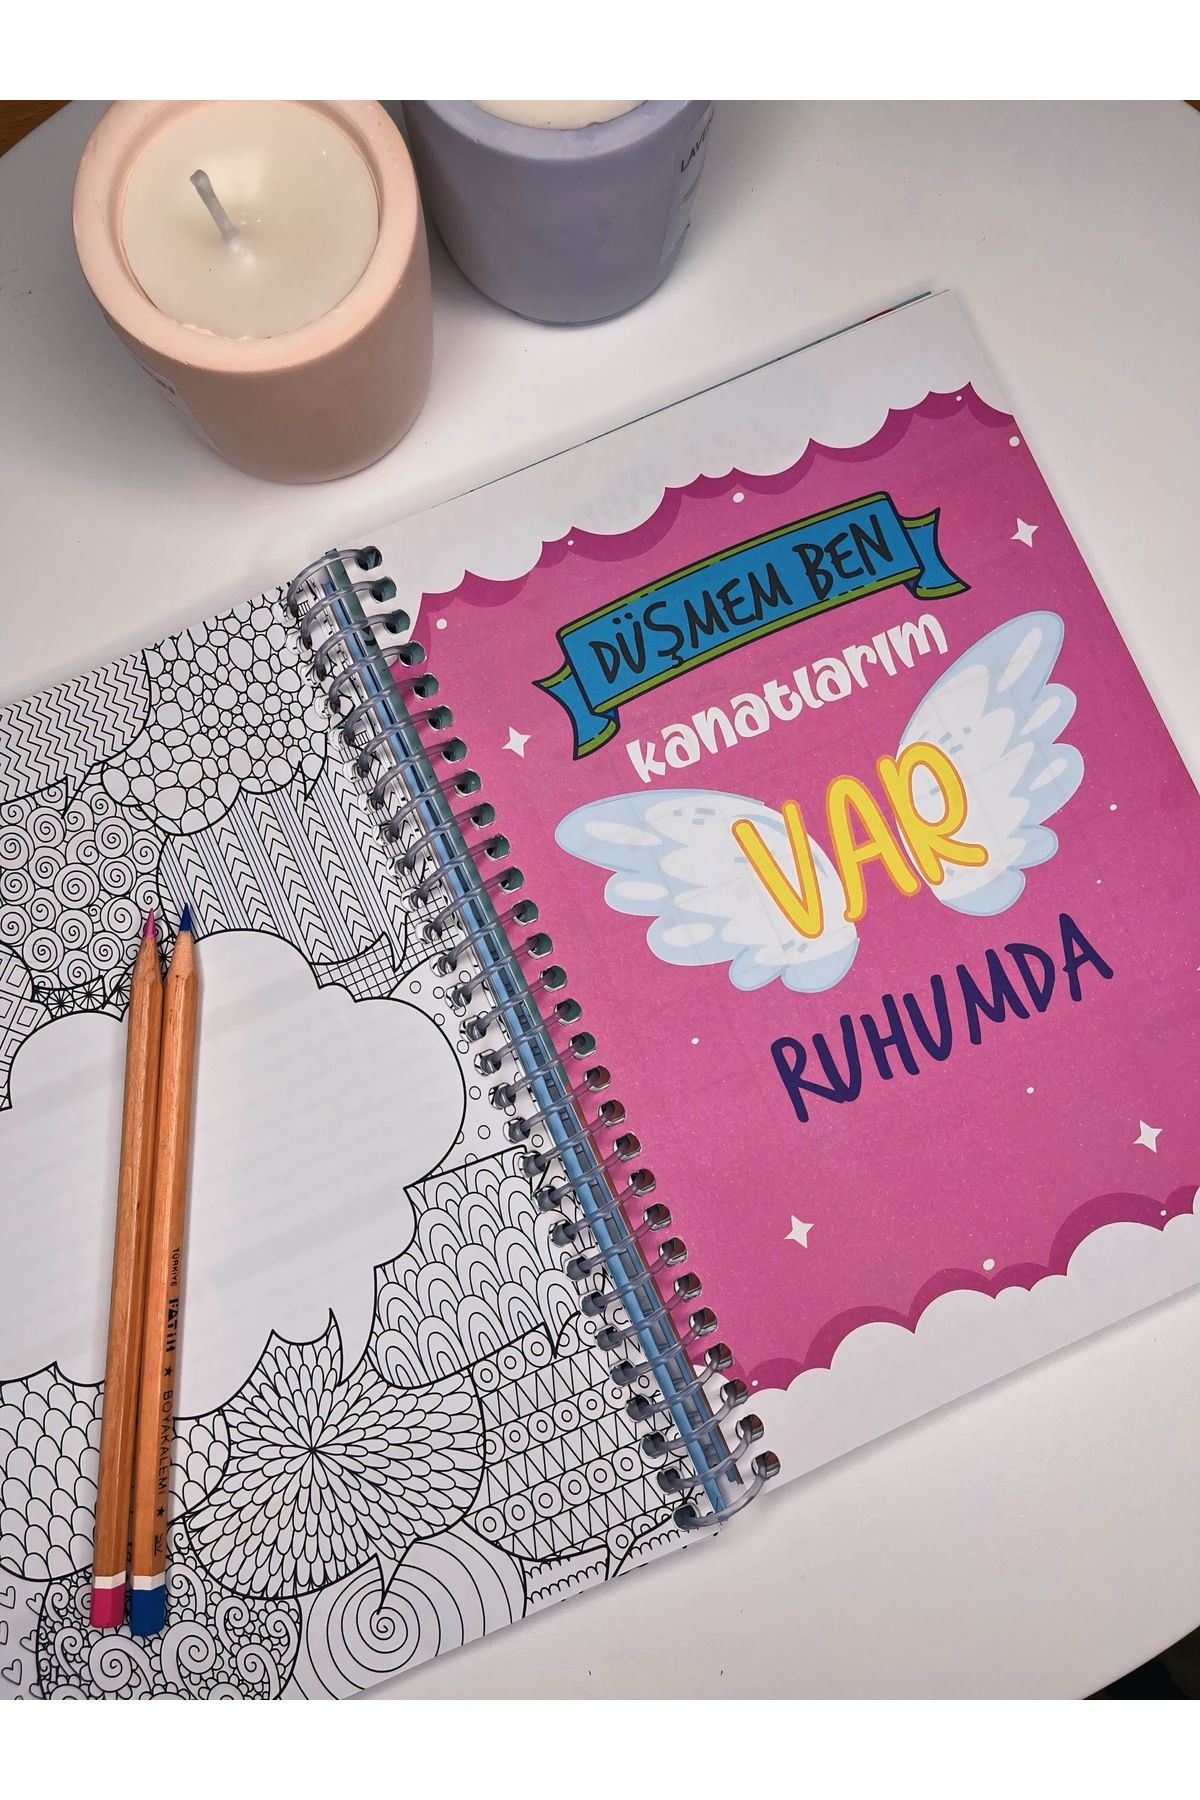 DÜŞMEM BEN
kanatlarım
VAR
RUHUMDA
TÜRKİYE FATİH ★ BOYAKALEMİ ★